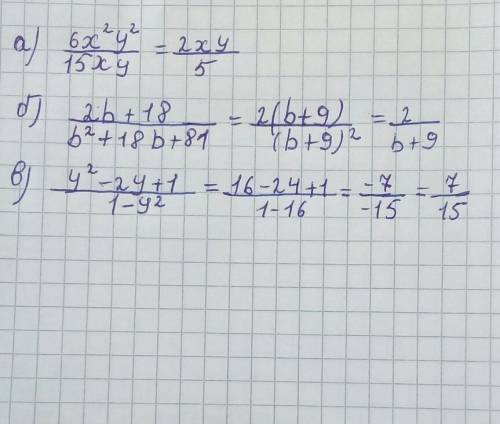 а) 6x²y²/15xy = 2xy/5
б) 2b+18/b²+18b+81 = 2(b+9)/(b+9)² = 2/b+9
в) y²-2y+1/1-y² = 16-24+1/1-16 = -7/-15 = 7/15